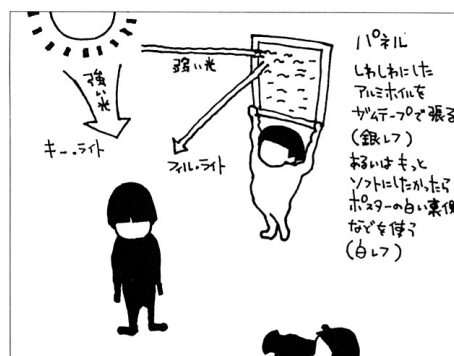 強い光
強い光
キー・ライト
フィル・ライト
パネル
しわしわにした
アルミホイルを
ガムテープで張る
(銀レフ)
あるいはもっと
ソフトにしたかったら
ポスターの白い裏側
などを使う
(白レフ)